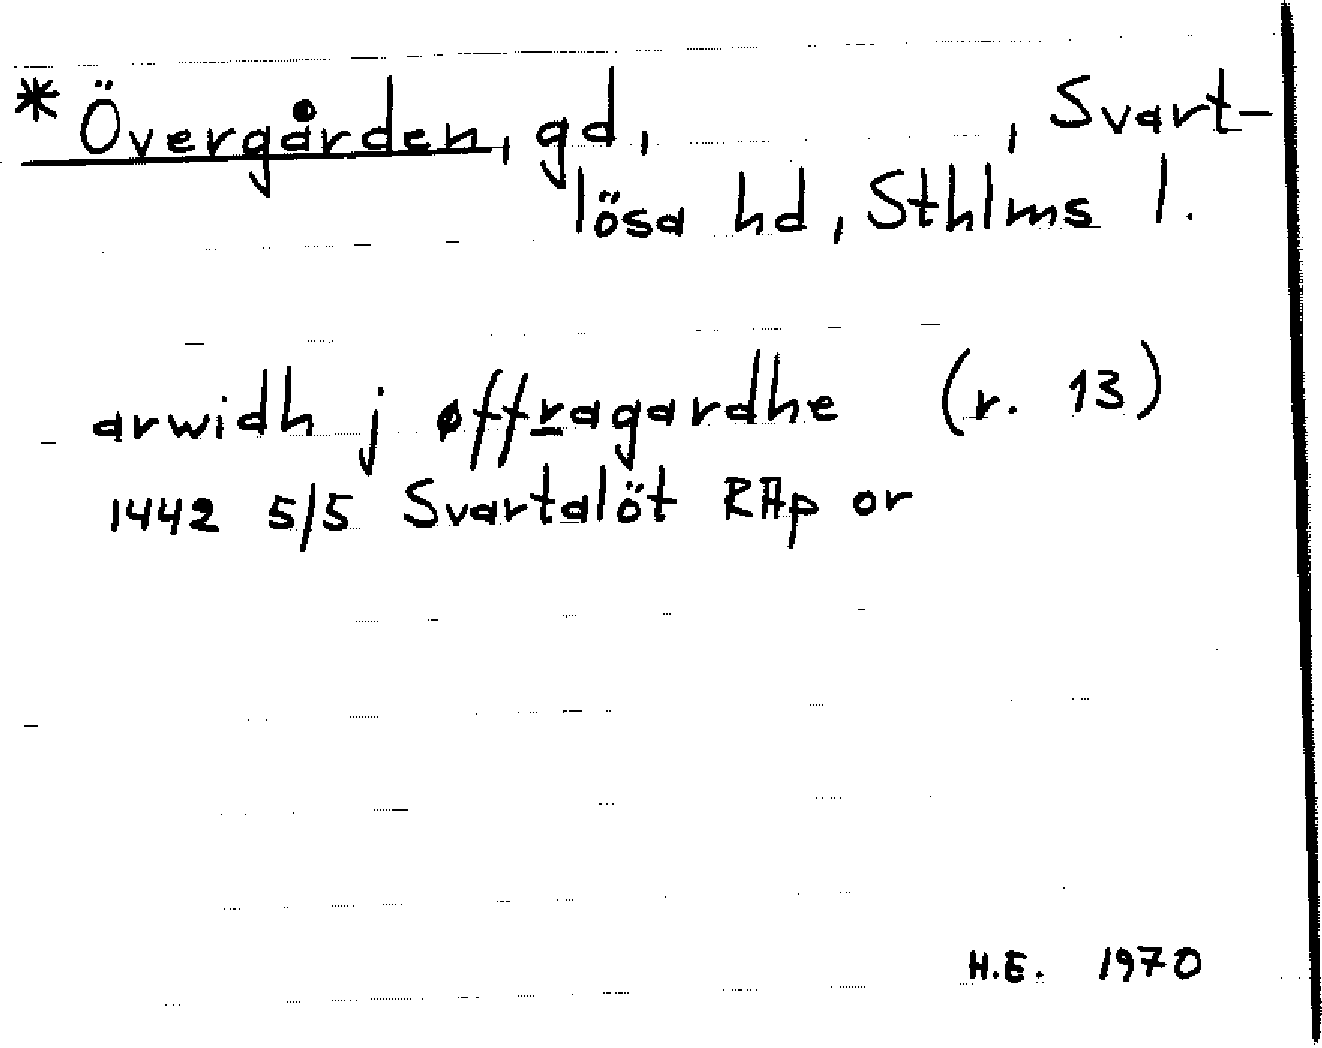 * Övergården, gd, , Svart-
lösa hd, Sthlms l.
arwidh j øffragardhe (r. 13)
1442 5/5 Svartalöt RAp or
H.E. 1970